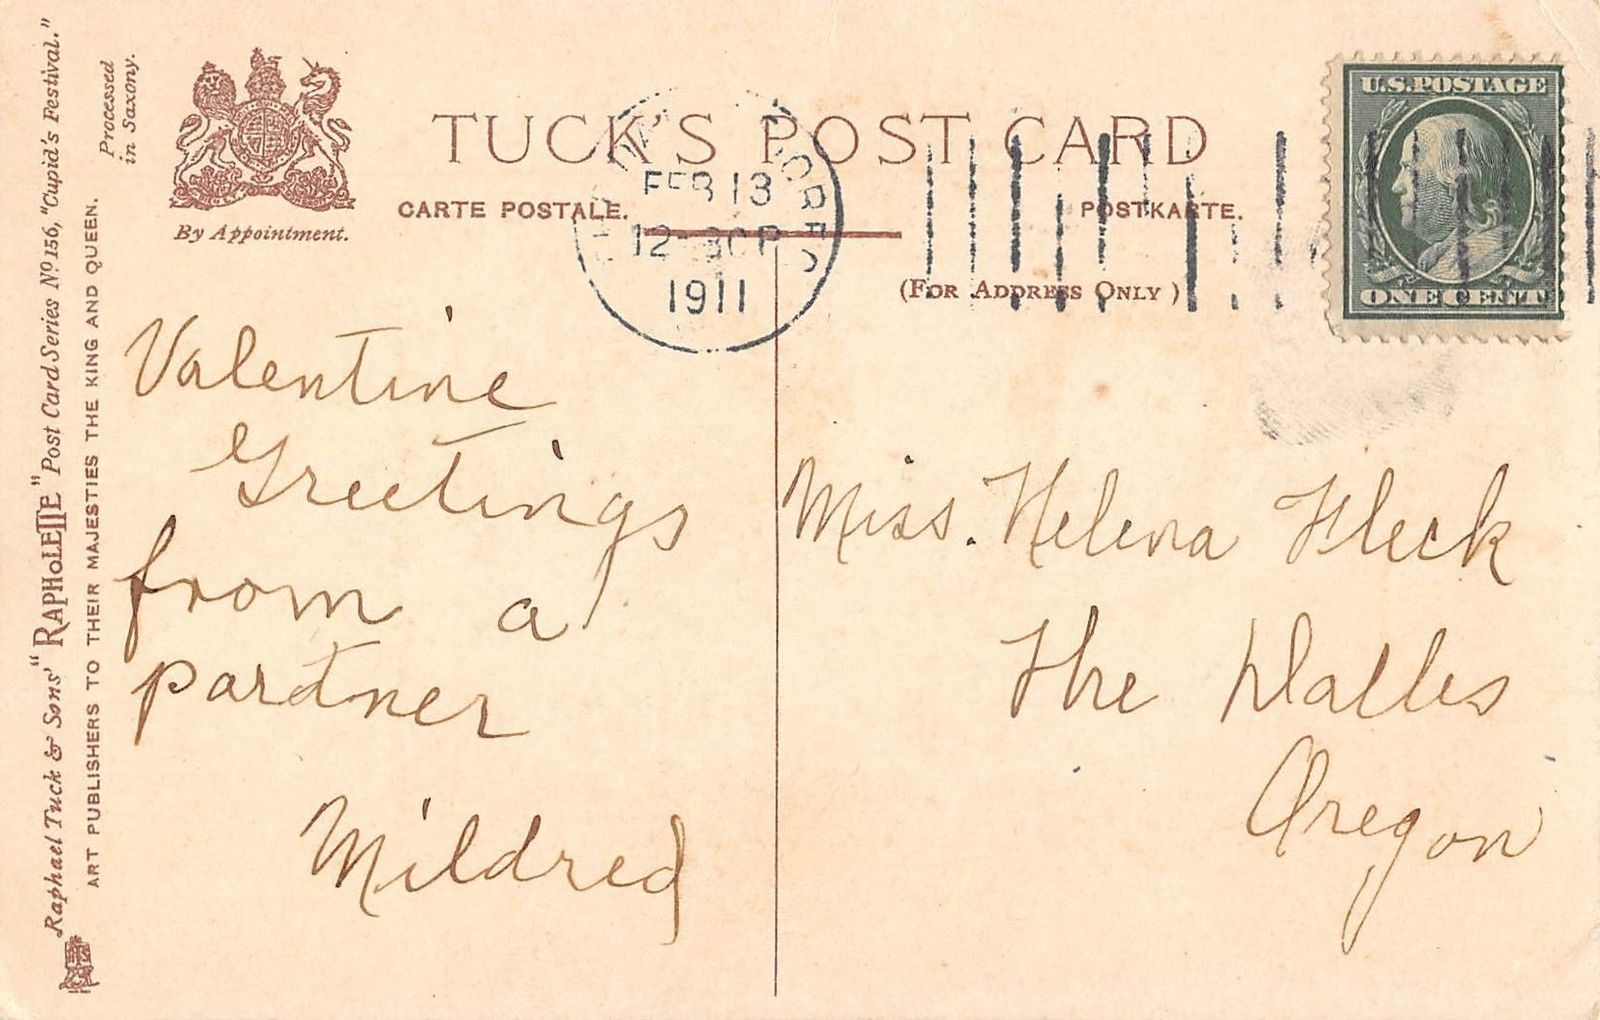 Raphael Tuck & Sons' "RAPHOLETTE" Post Card Series Nº 156, "Cupid's Festival."
ART PUBLISHERS TO THEIR MAJESTIES THE KING AND QUEEN.
Processed
in Saxony.
By Appointment.
TUCK'S POST CARD
CARTE POSTALE.
POSTKARTE.
(FOR ADDRESS ONLY)
FEB 13
12-30P
1911
U.S. POSTAGE
ONE CENT
Valentine
Greetings
from a
partner
Mildred
Miss. Helena Fleck
The Dalles
Oregon